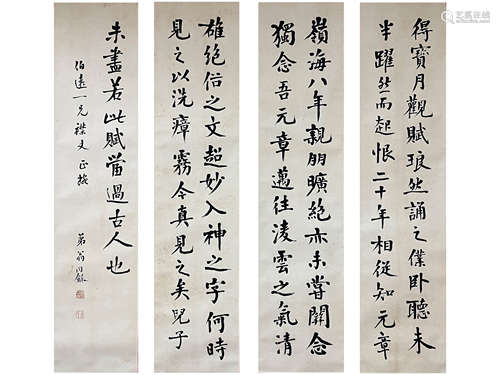 得寶月觀賦琅然誦之僕卧聽未
半躍然而起恨二十年相從知元章
嶺海八年親朋曠絕亦未嘗關念
獨念吾元章邁往淩雲之氣清
雄絕俗之文超妙入神之字何時
見之以洗瘴霧今真見之矣兒子
未盡若此賦當過古人也
伯遠一兄襟丈 正
弟翁同龢